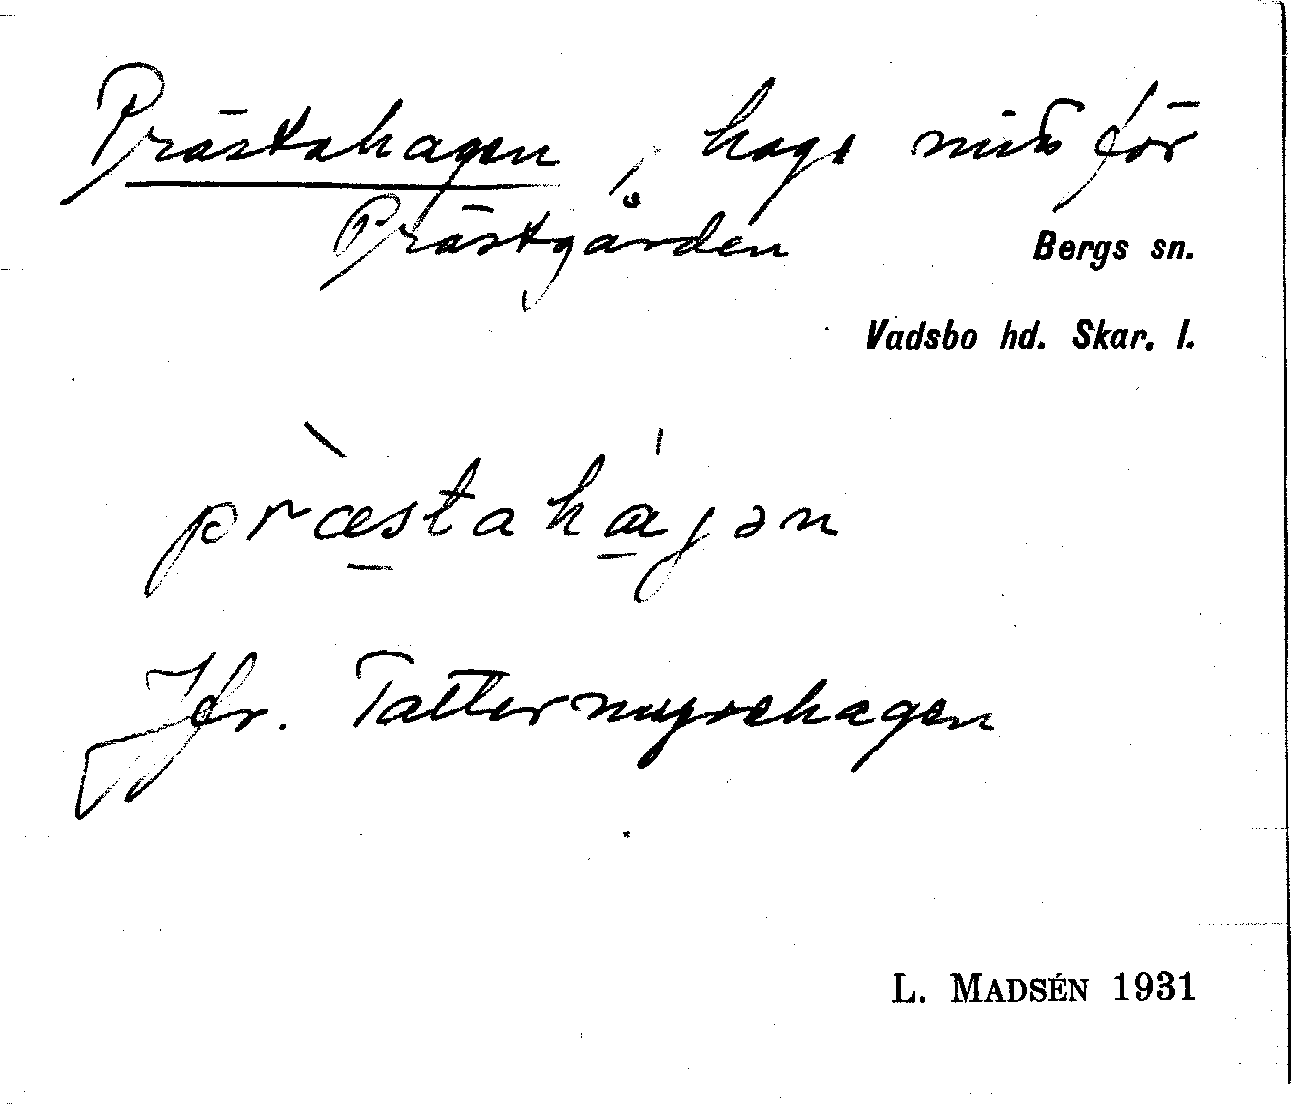 Prästahagen, hage mitt för
Prästgården
Bergs sn.
Vadsbo hd. Skar. l.
præ̱staha̱gən
Jfr. Tattermyrehagen
L. MADSÉN 1931